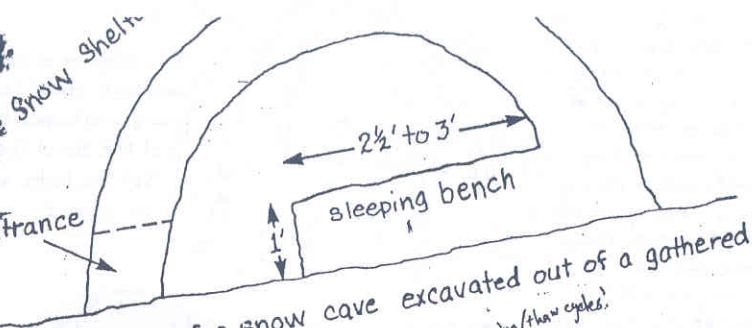 Snow Shelt
2½' to 3'
sleeping bench
1'
trance
snow cave excavated out of a gathered
/thaw cycles.